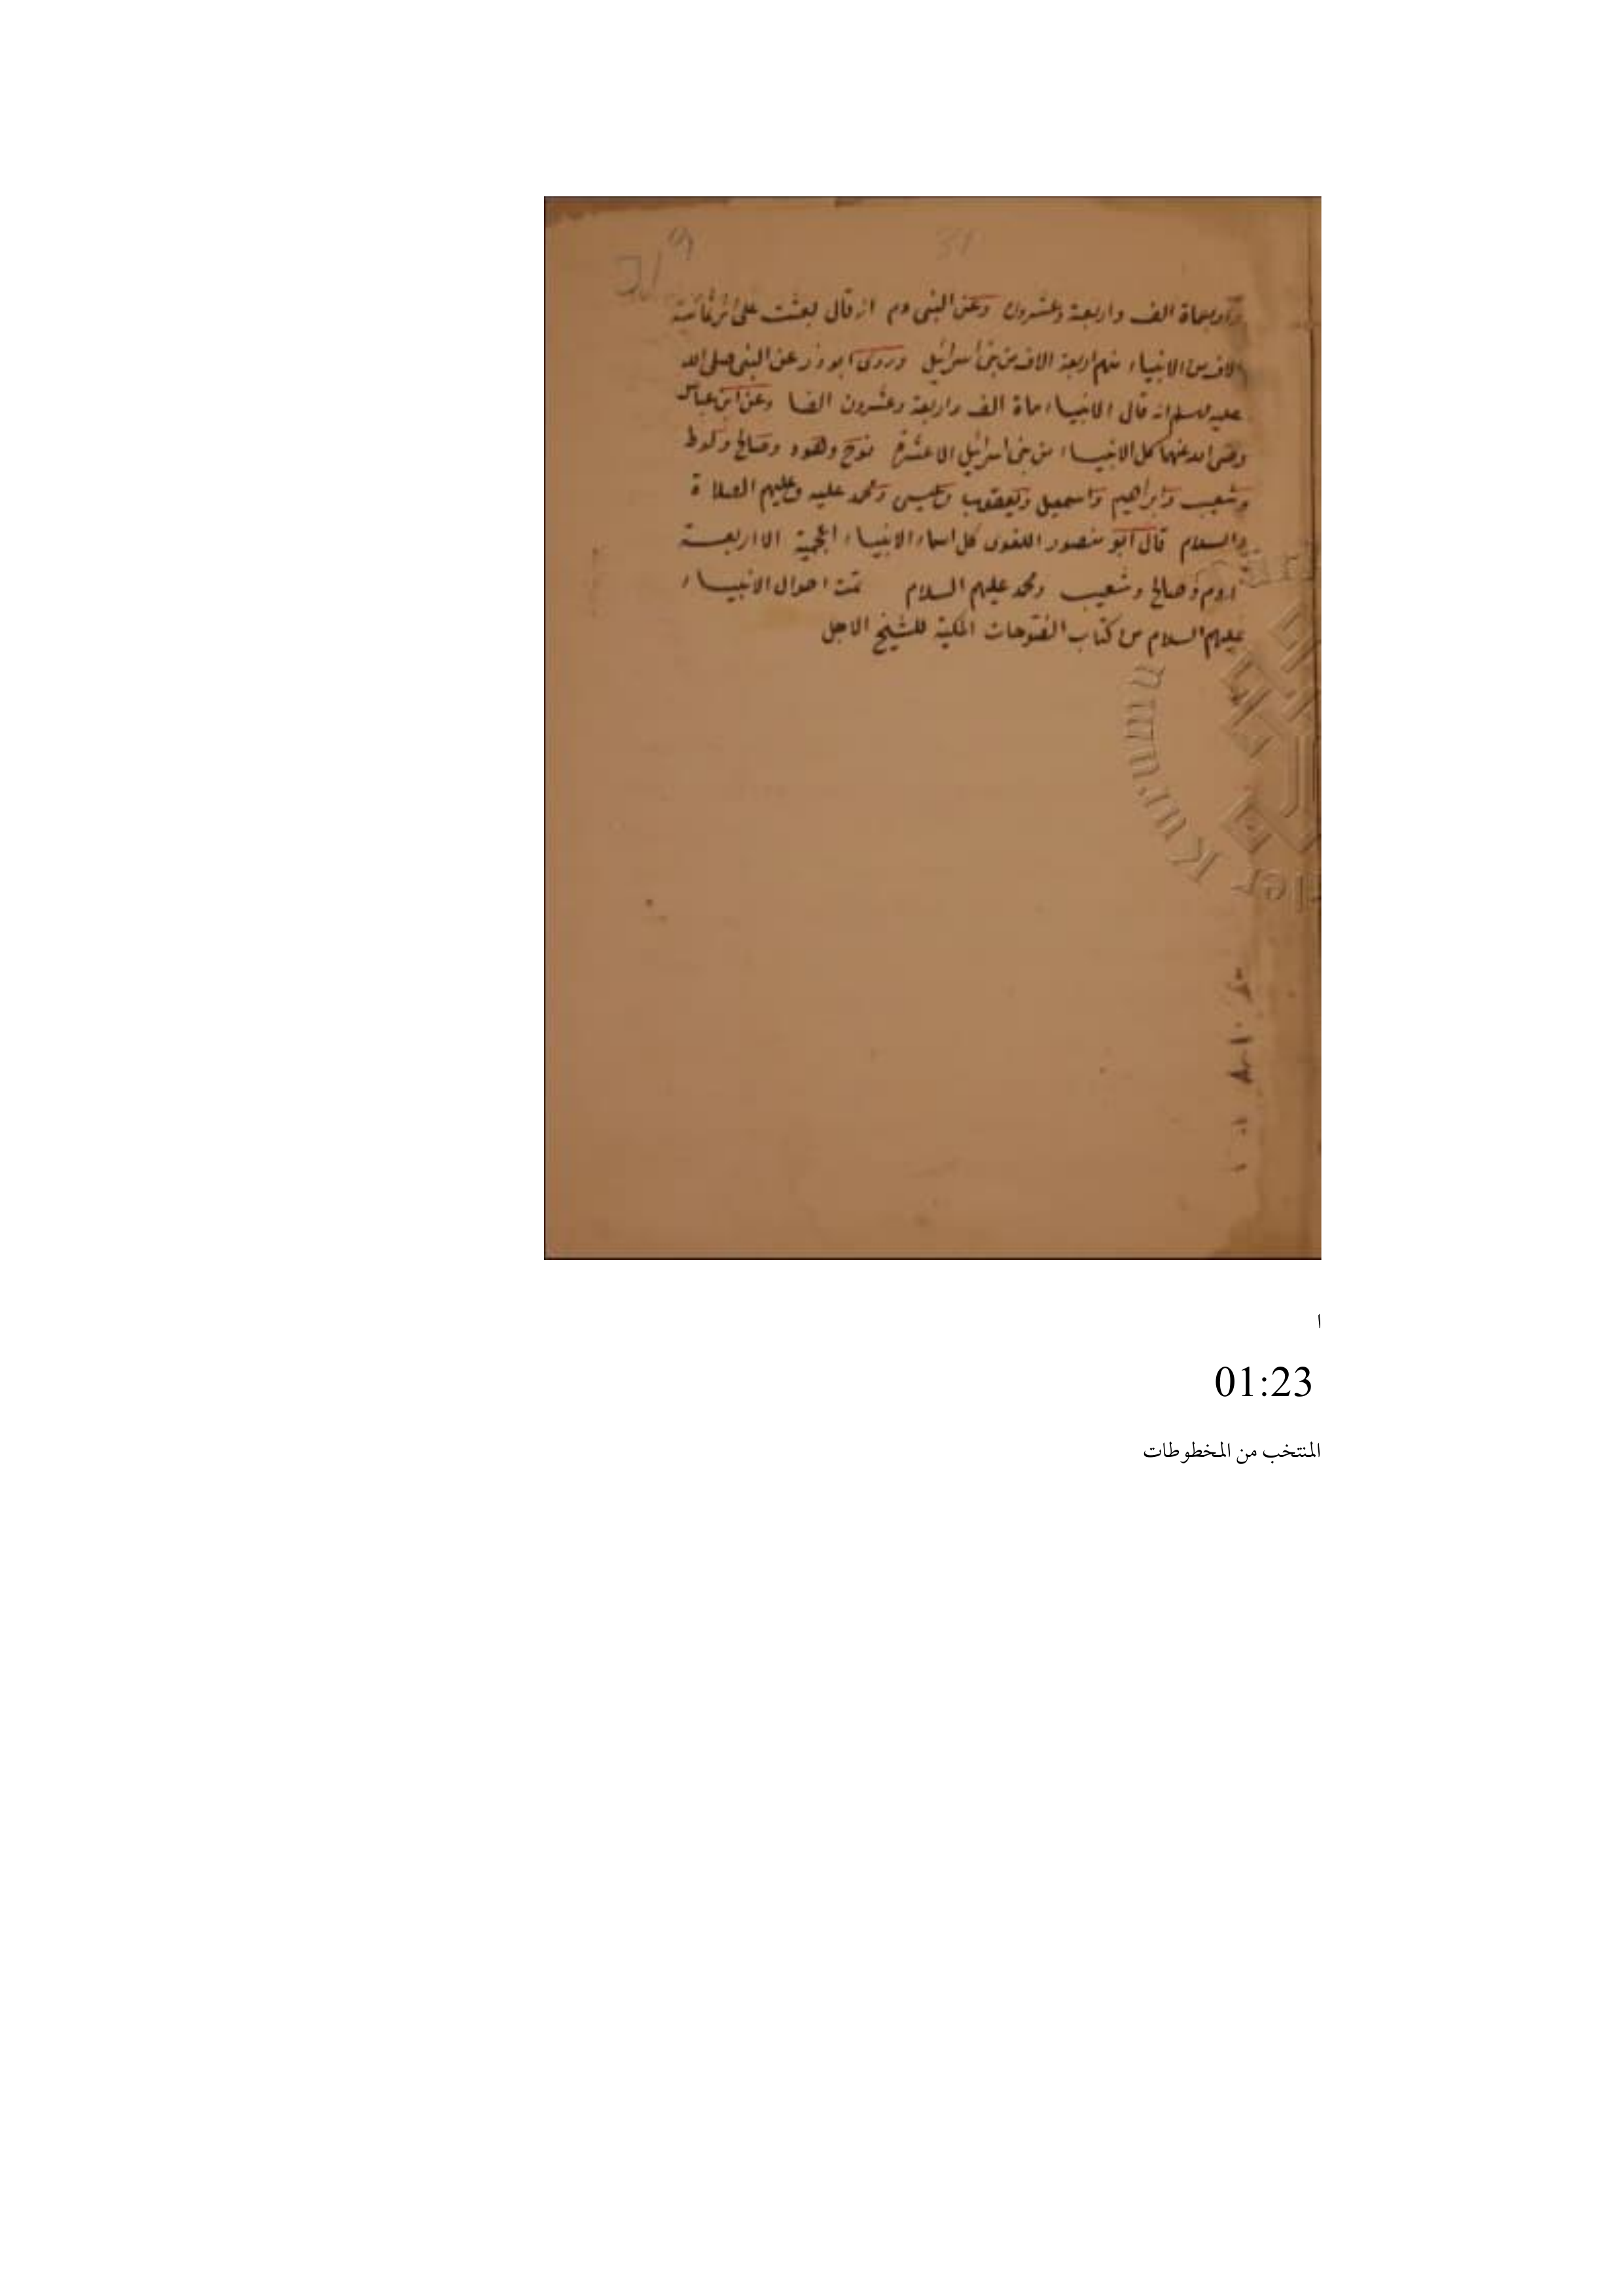 مأة الف واربعة وعشرون وعن النبى انه قال بعثت على اثر ثمانية
الاف من الانبياء منهم اربعة الاف من بنى اسرائيل وروى ابو ذر عن النبى صلى الله
عليه وسلم انه قال الانبياء مأة الف واربعة وعشرون الفا وعن ابن عباس
رضى الله عنهما كل الانبياء من بنى اسرائيل الا عشرة نوح وهود وصالح ولوط
وشعيب وابراهيم واسمعيل ويعقوب وعيسى ومحمد عليه وعليهم الصلاة
والسلام قال ابو منصور اللغوى كل اسماء الانبياء اعجمية الا اربعة
ادم وصالح وشعيب ومحمد عليهم السلام تمت احوال الانبياء
عليهم السلام من كتاب الفتوحات المكية للشيخ الاجل
ا
01:23
المنتخب من المخطوطات